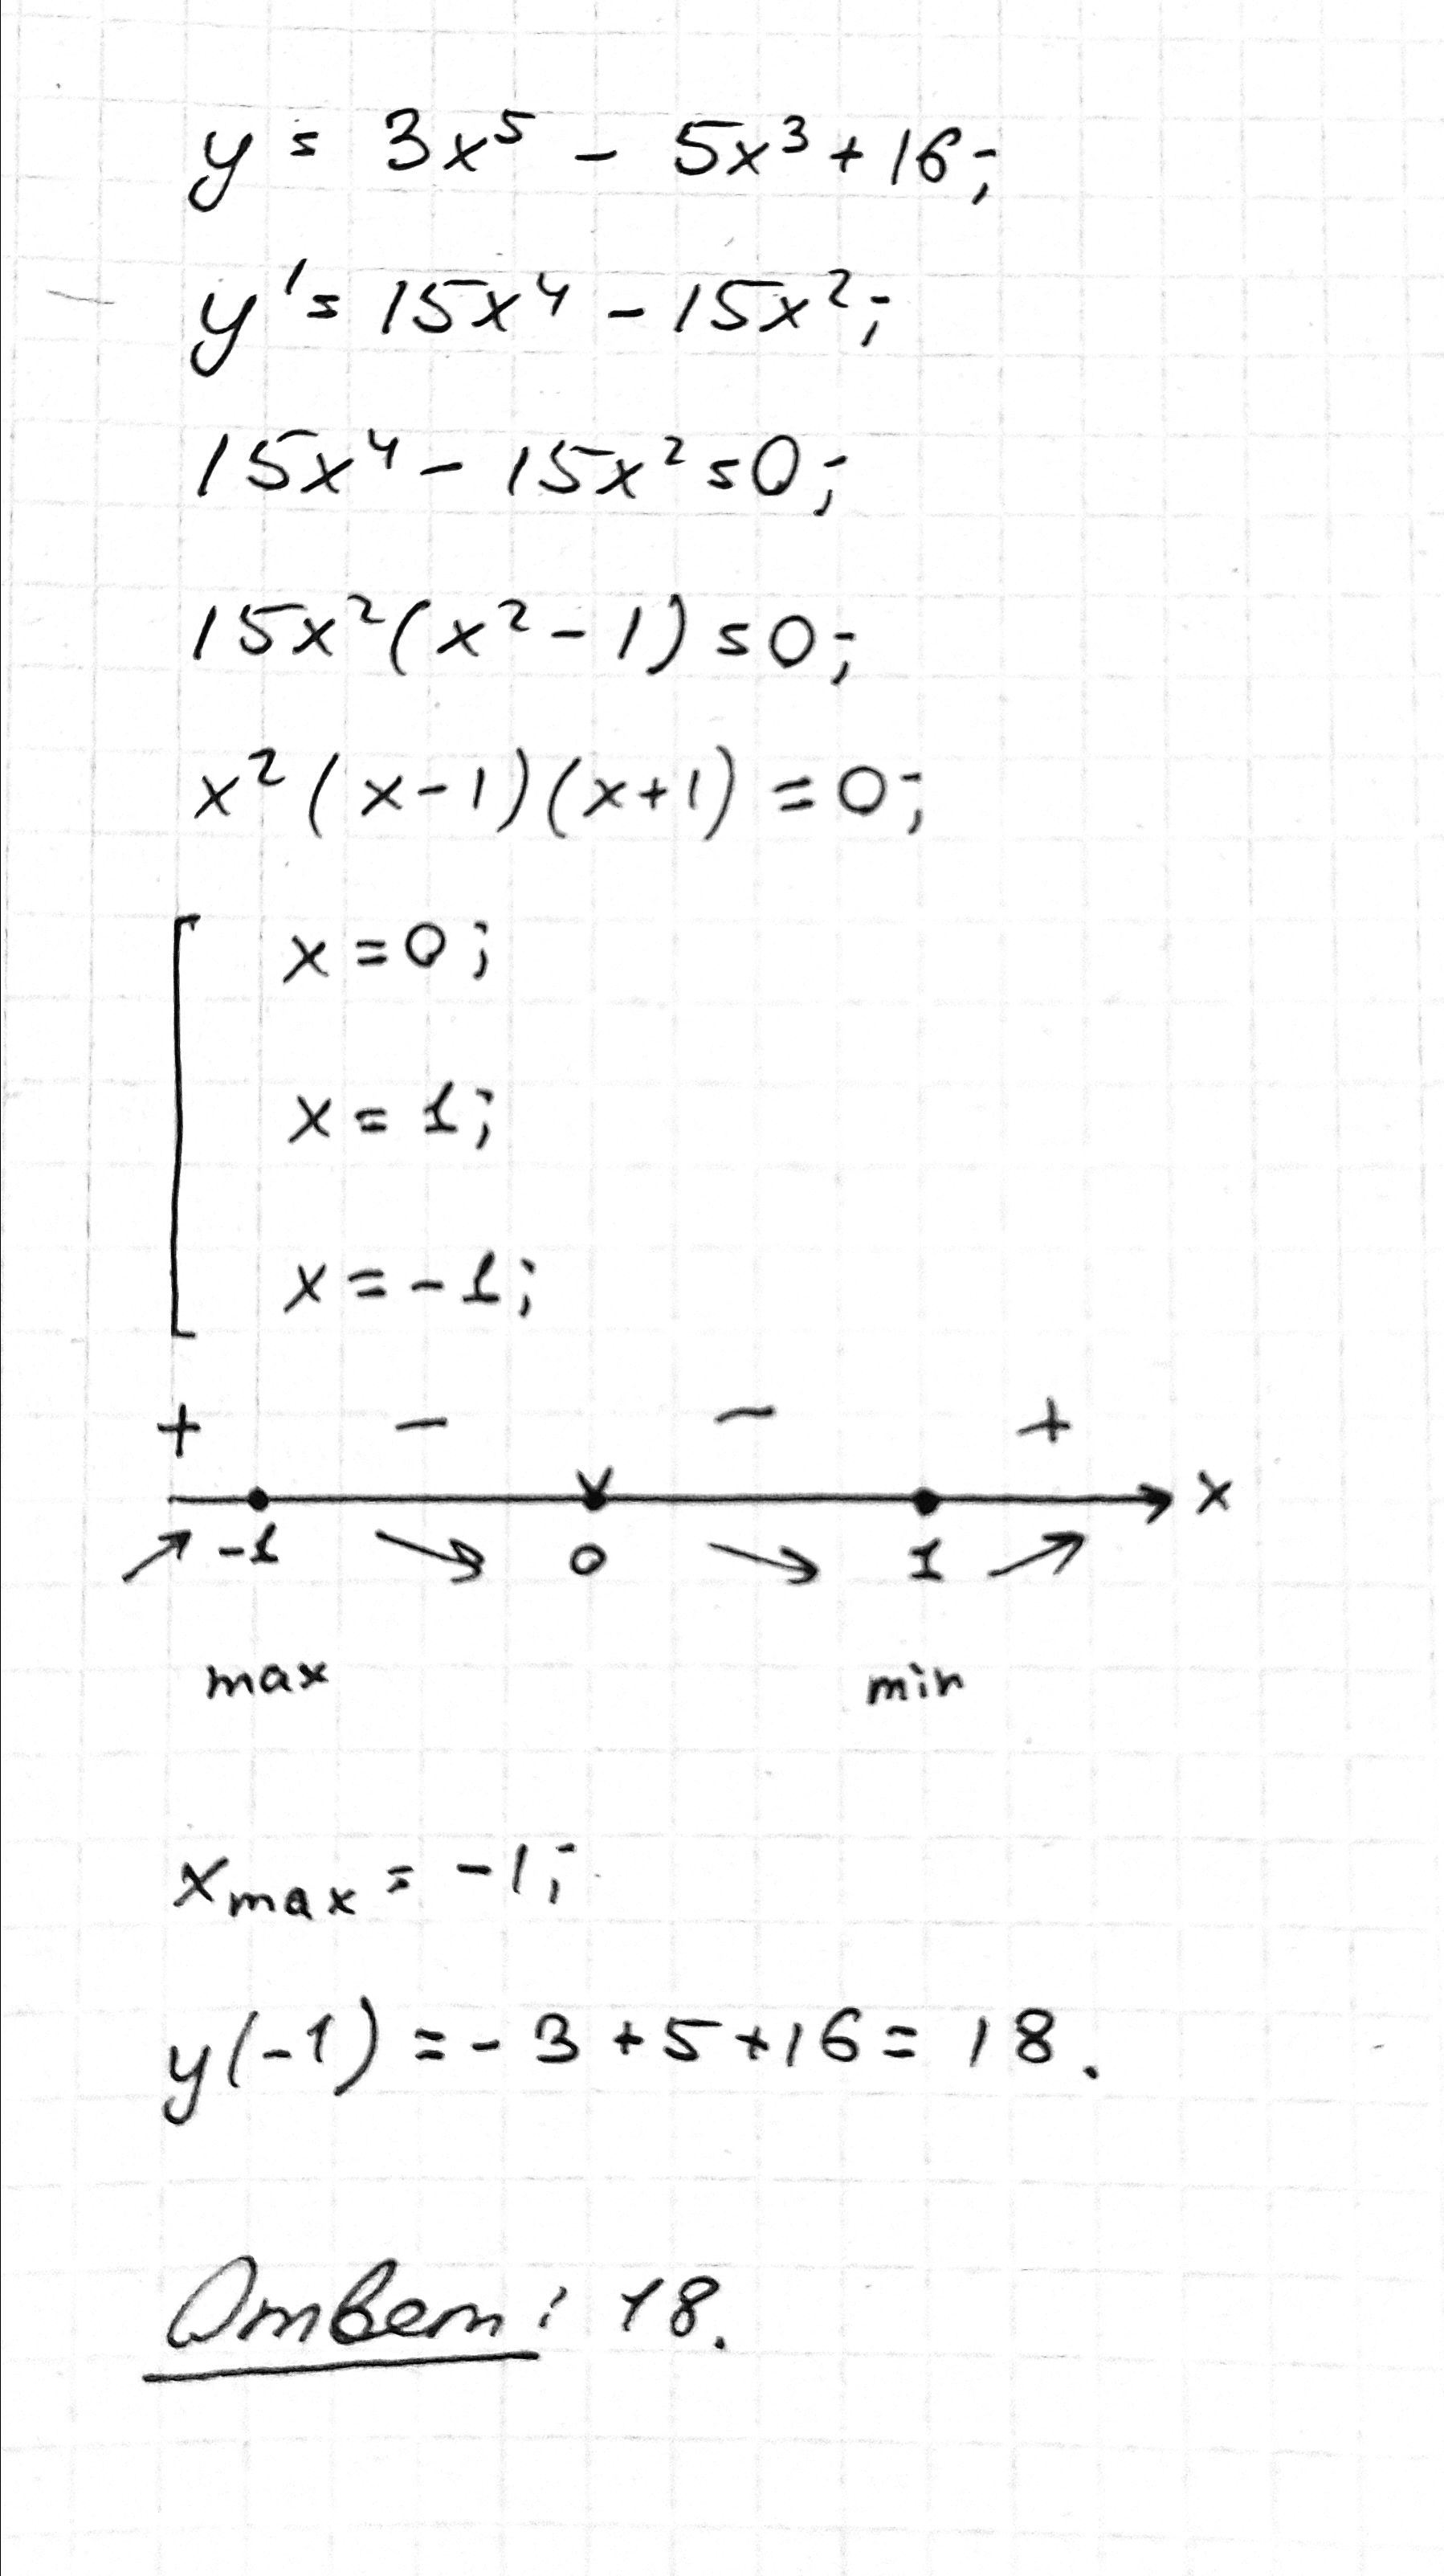 y = 3x⁵ - 5x³ + 16;
y' = 15x⁴ - 15x²;
15x⁴ - 15x² = 0;
15x²(x² - 1) = 0;
x²(x-1)(x+1) = 0;
x = 0;
x = 1;
x = -1;
+ - - +
-1 0 1 x
max min
x max = -1;
y(-1) = -3 + 5 + 16 = 18.
Ответ: 18.